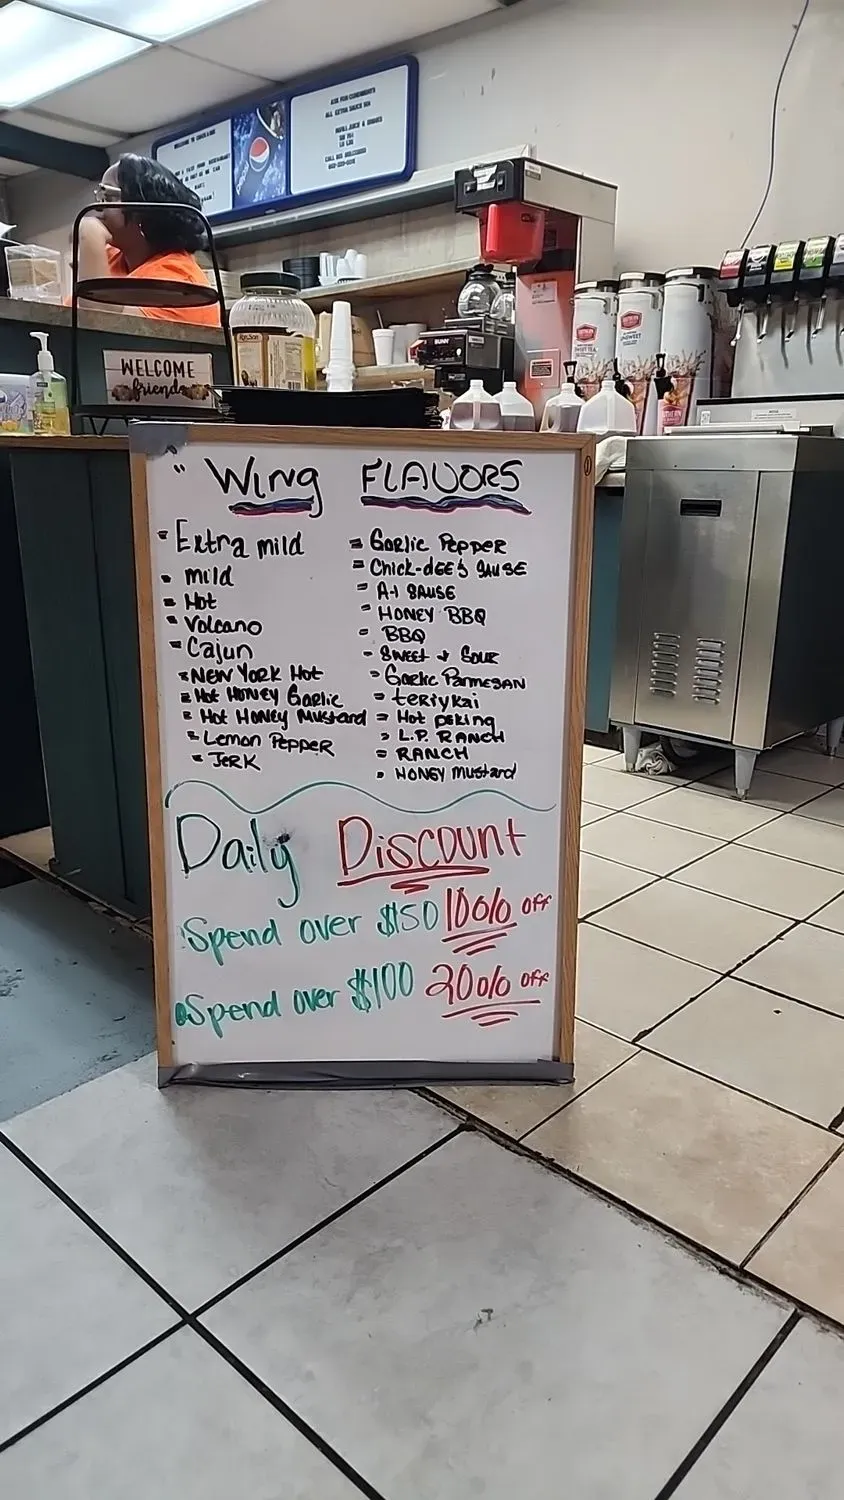 ASK FOR CONDIMENTS
ALL EXTRA SAUCE 50¢
pepsi
BUNN
SWEET TEA
UNSWEET
WELCOME
friends
" Wing FLAVORS
Extra mild
mild
Hot
Volcano
Cajun
NEW YORK Hot
Hot HONEY Garlic
Hot Honey Mustard
Lemon Pepper
JerK
Garlic Pepper
Chick-dee's SAUSE
A-1 SAUSE
HONEY BBQ
BBQ
Sweet & Sour
Garlic Parmesan
teriykai
Hot peking
L.P. RANCH
RANCH
HONEY Mustard
Daily Discount
Spend over $150 10% off
Spend over $100 20% off